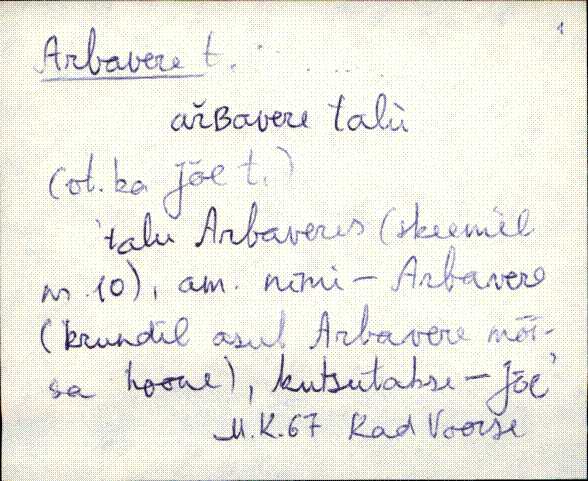 1
Arbavere t.
ar̆Bavere talù
(vt. ka Jõe t.)
talu Arbaveres (skeemil
nr. 10), am. nimi – Arbavere
(krundil asub Arbavere mõi-
sa hoone), kutsutakse – Jõe
M.K.67 Kad Voorse